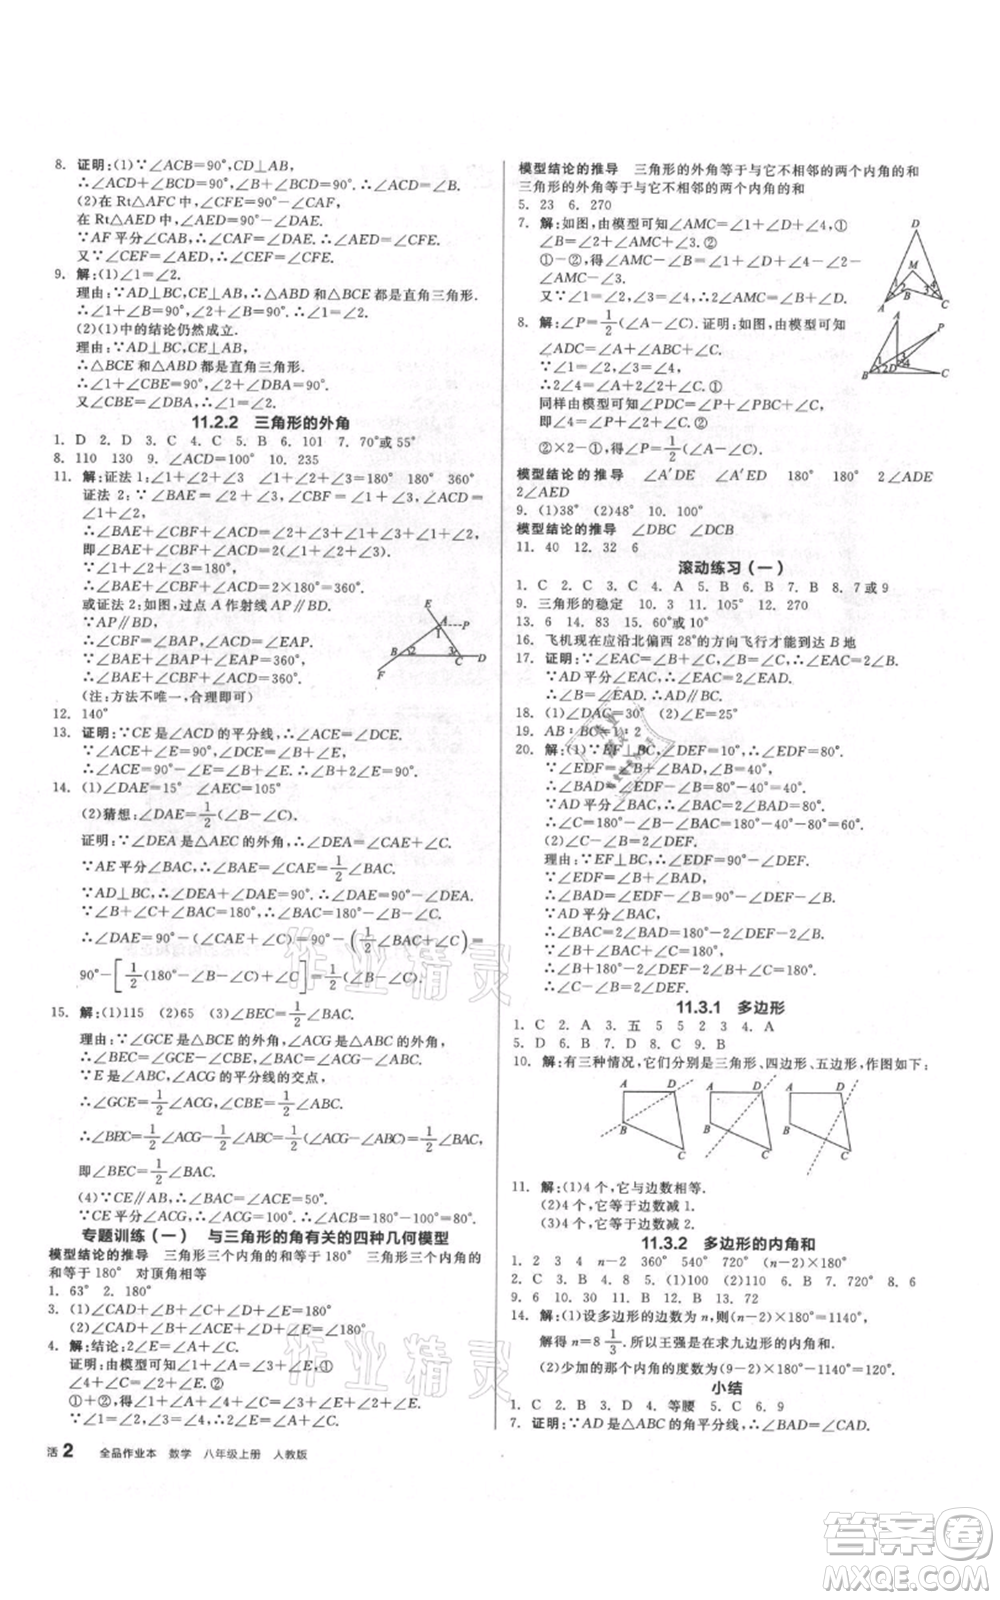 8. 证明:(1)∵∠ACB=90°,CD⊥AB,
∴∠ACD+∠BCD=90°,∠B+∠BCD=90°,
∴∠ACD+∠BCD=∠B+∠BCD,∴∠ACD=∠B.
(2)在Rt△AFC中,∠CFE=90°-∠CAF,
在Rt△AED中,∠AED=90°-∠DAE.
∵AF平分∠CAB,∴∠CAF=∠DAE,∴∠AED=∠CFE.
又∵∠CEF=∠AED,∴∠CEF=∠CFE.
9. 解:(1)∠1=∠2.
理由:∵AD⊥BC,CE⊥AB,∴△ABD和△BCE都是直角三角形.
∴∠1+∠B=90°,∠2+∠B=90°.∴∠1=∠2.
(2)(1)中的结论仍然成立.
理由:∵AD⊥BC,CE⊥AB,∴∠D=∠E=90°.
∴△BCE和△ABD都是直角三角形.
∴∠1+∠CBE=90°,∠2+∠DBA=90°.
又∵∠CBE=∠DBA,∴∠1=∠2.
11.2.2 三角形的外角
1. D 2. D 3. C 4. C 5. B 6. 101 7. 70°或55°
8. 110 130 9. ∠ACD=100° 10. 235
11. 解:证法1:∠1+∠2 ∠1+∠2+∠3=180° 180° 360°
证法2:∵∠BAE=∠2+∠3,∠CBF=∠1+∠3,∠ACD=
∠1+∠2,
∴∠BAE+∠CBF+∠ACD=∠2+∠3+∠1+∠3+∠1+∠2,
即∠BAE+∠CBF+∠ACD=2(∠1+∠2+∠3).
∵∠1+∠2+∠3=180°,
∴∠BAE+∠CBF+∠ACD=2×180°=360°.
或证法2:如图,过点A作射线AP∥BD.
∵AP∥BD,
∴∠CBF=∠PAB,∠ACD=∠EAP.
∵∠BAE+∠PAB+∠EAP=360°,
∴∠BAE+∠CBF+∠ACD=360°.
(注:方法不唯一,合理即可)
12. 140°
13. 证明:∵CE是∠ACD的平分线,∴∠ACE=∠DCE.
∵∠DCE=∠B+∠E,∴∠ACE=∠B+∠E.
∵∠BAC=∠ACE+∠E,∴∠BAC=∠B+∠E+∠E=∠B+2∠E.
14. (1)∠DAE=15° ∠DAE=10°
(2)猜想:∠DAE=1/2(∠B-∠C).
证明:∵∠DEA是△AEC的外角,∴∠DEA=∠CAE+∠C.
∵AE平分∠BAC,∴∠CAE=1/2∠BAC.∴∠DEA=1/2∠BAC+∠C.
∵AD⊥BC,∴∠DEA+∠DAE=90°,∴∠DAE=90°-∠DEA.
∵∠B+∠C+∠BAC=180°,∴∠BAC=180°-∠B-∠C,
∴∠DAE=90°-∠DEA=90°-(1/2∠BAC+∠C)=
90°-[1/2(180°-∠B-∠C)+∠C]=1/2(∠B-∠C).
15. 解:(1)115 (2)65 (3)∠BEC=1/2∠BAC.
理由:∵∠GCE是△BCE的外角,∠ACG是△ABC的外角,
∴∠BEC=∠GCE-∠EBC,∠BAC=∠ACG-∠ABC.
∵E是∠ABC,∠ACG的平分线的交点,
∴∠GCE=1/2∠ACG,∠EBC=1/2∠ABC.
∴∠BEC=1/2∠ACG-1/2∠ABC=1/2(∠ACG-∠ABC),
即∠BEC=1/2∠BAC.
(4)∵CE∥AB,∴∠ACE=∠BAC=50°.
∵CE平分∠ACG,∴∠ACG=2∠ACE=100°.
专题训练(一) 与三角形的角有关的四种几何模型
模型结论的推导 三角形三个内角的和等于180° 三角形三个内角的
和等于180° 对顶角相等
1. 63° 2. 180°
3. (1)∠CAD+∠B+∠C+∠D+∠E=180°
(2)∠CAD+∠B+∠ACE+∠D+∠E=180°
4. 解:结论:2∠E=∠A+∠C.
证明:由模型可知∠A+∠1=∠3+∠E,①
∠C+∠4=∠2+∠E.②
①+②,得∠A+∠1+∠C+∠4=∠3+∠E+∠2+∠E.
∵∠1=∠2,∠3=∠4,∴2∠E=∠A+∠C.
活2 全品作业本 数学 八年级上册 人教版
模型结论的推导 三角形的外角等于与它不相邻的两个内角的和
三角形的外角等于与它不相邻的两个内角的和
5. 23 6. 270
7. 解:如图,由模型可知∠AMC=∠1+∠D+∠4,①
∠ABC=∠2+∠AMC+∠3.②
①-②,得∠AMC-∠ABC=∠1+∠D+∠4-∠2-
∠AMC-∠3.
又∵∠1=∠2,∠3=∠4,∴2∠AMC=∠ABC+∠D.
8. 解:∠P=1/2(∠A-∠C).证明:如图,由模型可知
∠ADC=∠A+∠ABC+∠C.
∴2∠4=∠A+2∠1+∠C.①
同样由模型可知∠4=∠P+∠1+∠C,
即∠P=∠4-∠1-∠C.②
②×2-①,得∠P=1/2(∠A-∠C).
模型结论的推导 ∠A′DE ∠A′ED 180° 180° 2∠ADE
2∠AED
9. (1)38° (2)48° 10. 100°
模型结论的推导 ∠DBC ∠DCB
11. 40 12. 32 6
滚动练习(一)
1. C 2. B 3. C 4. A 5. B 6. B 7. B 8. 7或9
9. 三角形的稳定 10. 3 11. 105° 12. 270
13. 6 14. 83 15. 60°或10°
16. 飞机现在应沿北偏西28°的方向飞行才能到达B地
17. 证明:∵∠EAC=∠B+∠C,∠B=∠C,∴∠EAC=2∠B.
∵AD平分∠EAC,∴∠EAC=2∠EAD.
∴∠B=∠EAD.∴AD∥BC.
18. (1)∠DAC=30° (2)∠E=25°
19. AB∶BC=1∶2
20. 解:(1)∵EF⊥BC,∠DEF=10°,∴∠EDF=80°.
∵∠EDF=∠B+∠BAD,∠B=40°,
∴∠BAD=∠EDF-∠B=80°-40°=40°.
∵AD平分∠BAC,∴∠BAC=80°.
∴∠C=180°-40°-80°=60°.
(2)∠C-∠B=2∠DEF.
理由:∵EF⊥BC,∴∠EDF=90°-∠DEF.
∵∠EDF=∠B+∠BAD,
∴∠BAD=∠EDF-∠B=90°-∠DEF-∠B.
∵AD平分∠BAC,
∴∠BAC=2∠BAD=180°-2∠DEF-2∠B.
∵∠B+∠BAC+∠C=180°,
∴∠B+180°-2∠DEF-2∠B+∠C=180°.
∴∠C-∠B=2∠DEF.
11.3.1 多边形
1. C 2. A 3. 五 5 5 2 4. A
5. D 6. B 7. D 8. C 9. B
10. 解:有三种情况,它们分别是三角形、四边形、五边形,作图如下:
11. 解:(1)4个,它与边数相等.
(2)4个,它与边数相等.
(3)4个
11.3.2 多边形的内角和
1. 1 2 3 4 n-2 360° 540° 720° (n-2)×180°
2. C 3. B 4. 8 5. (1)100 (2)110 6. B 7. 720° 8. 6
9. 6 10. 30 11. B 12. B 13. 72
14. 解:(1)设多边形的边数为n,则(n-2)×180°=1140°,
解得n=8 1/3.所以王强是在求九边形的内角和.
(2)少加的那个内角的度数为(9-2)×180°-1140°=120°.
小结
1. C 2. D 3. A 4. 等腰 5. C 6. 9
7. 证明:∵AD是△ABC的中线,∴BD=CD.
作业精灵
作业精灵
答案卷
MXQE.COM